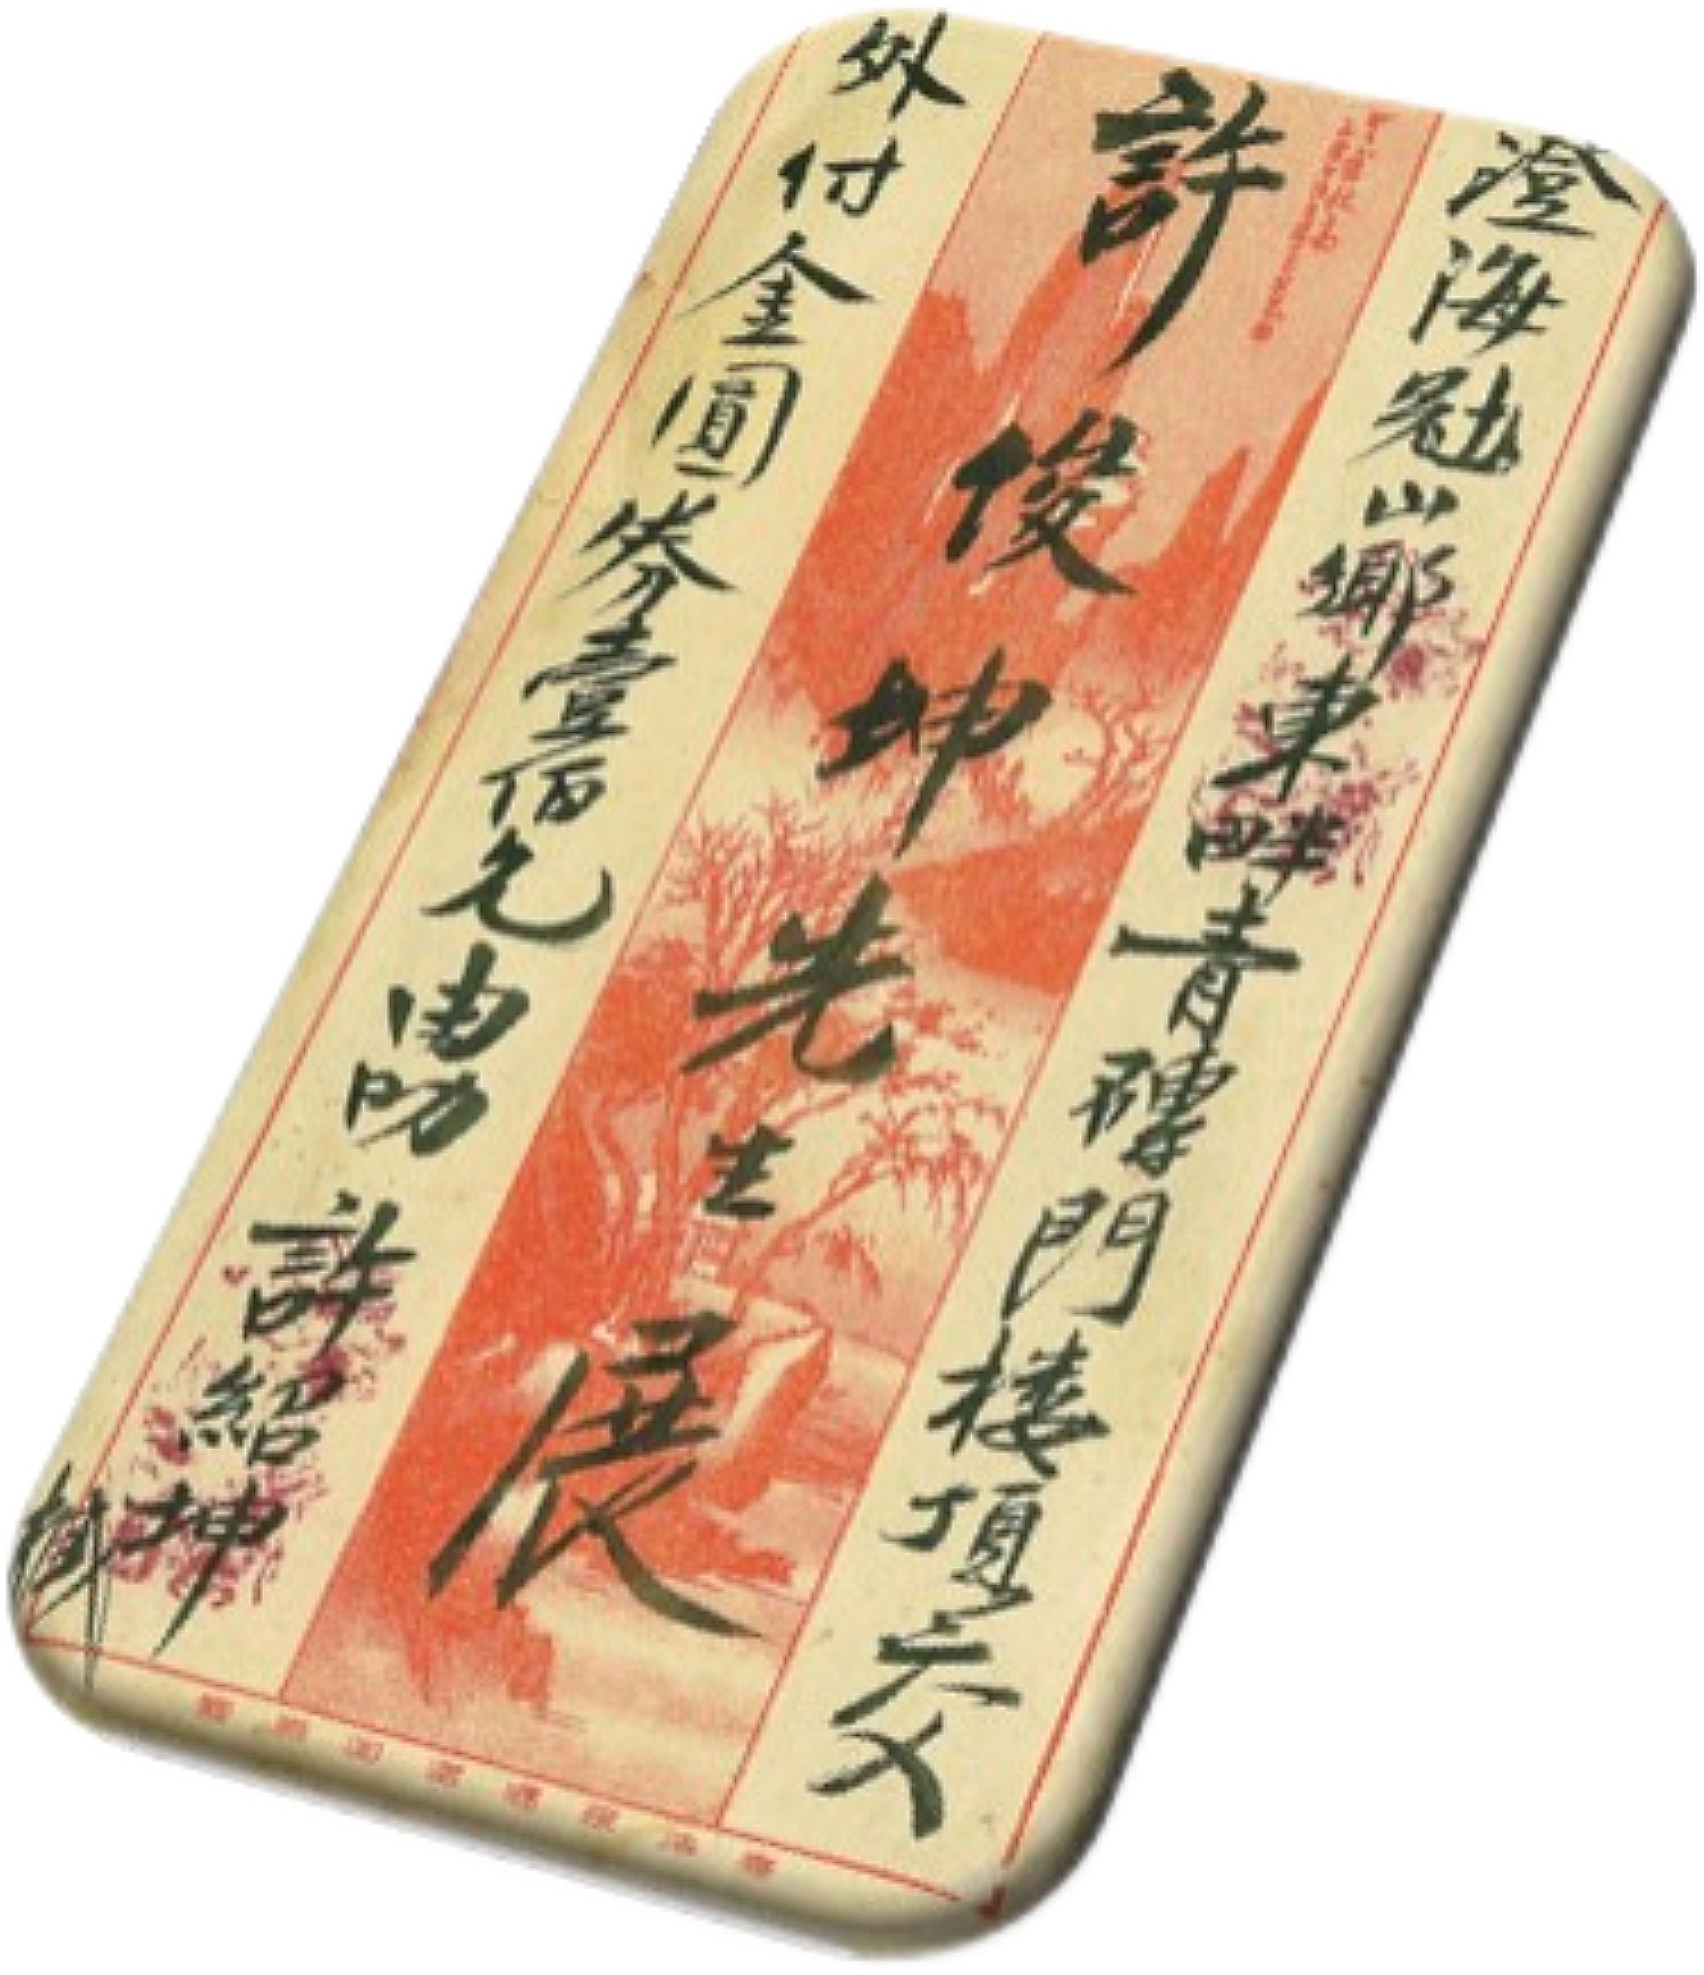 澄海冠山鄉東畔青磚門楼頂六父
許俊坤先生展
外付金圓券壹佰元由叻許紹坤